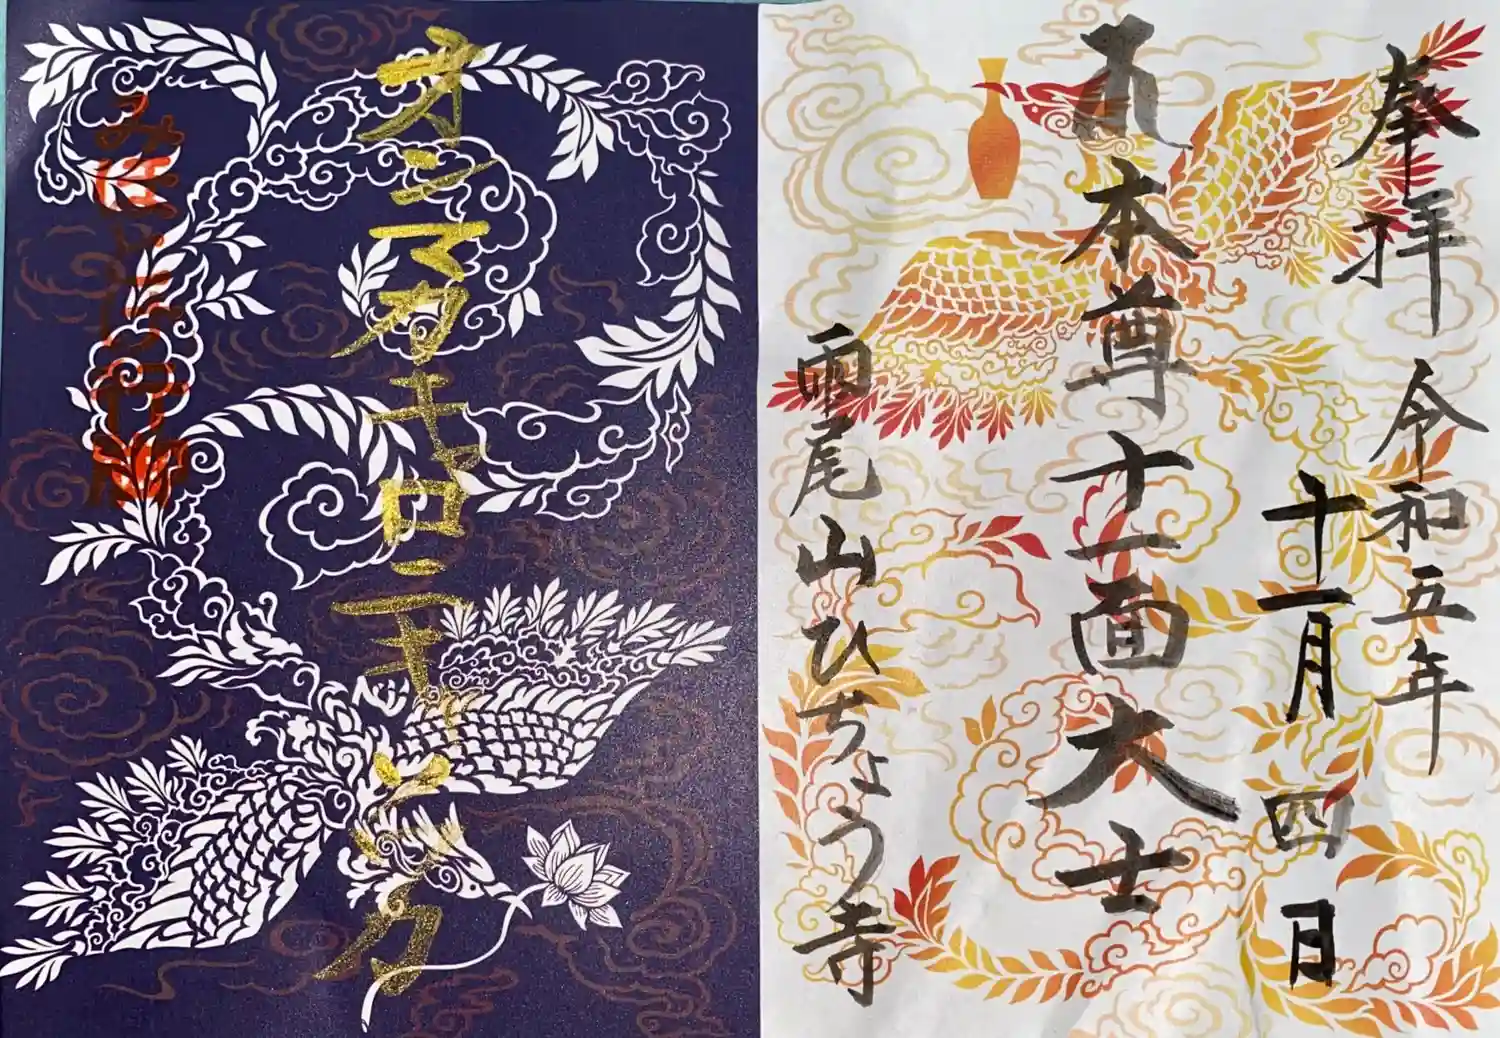 奉拝 令和五年
十一月四日
本尊十一面大士
雨尾山ひちょう寺
オンマカキャロニキャソワカ